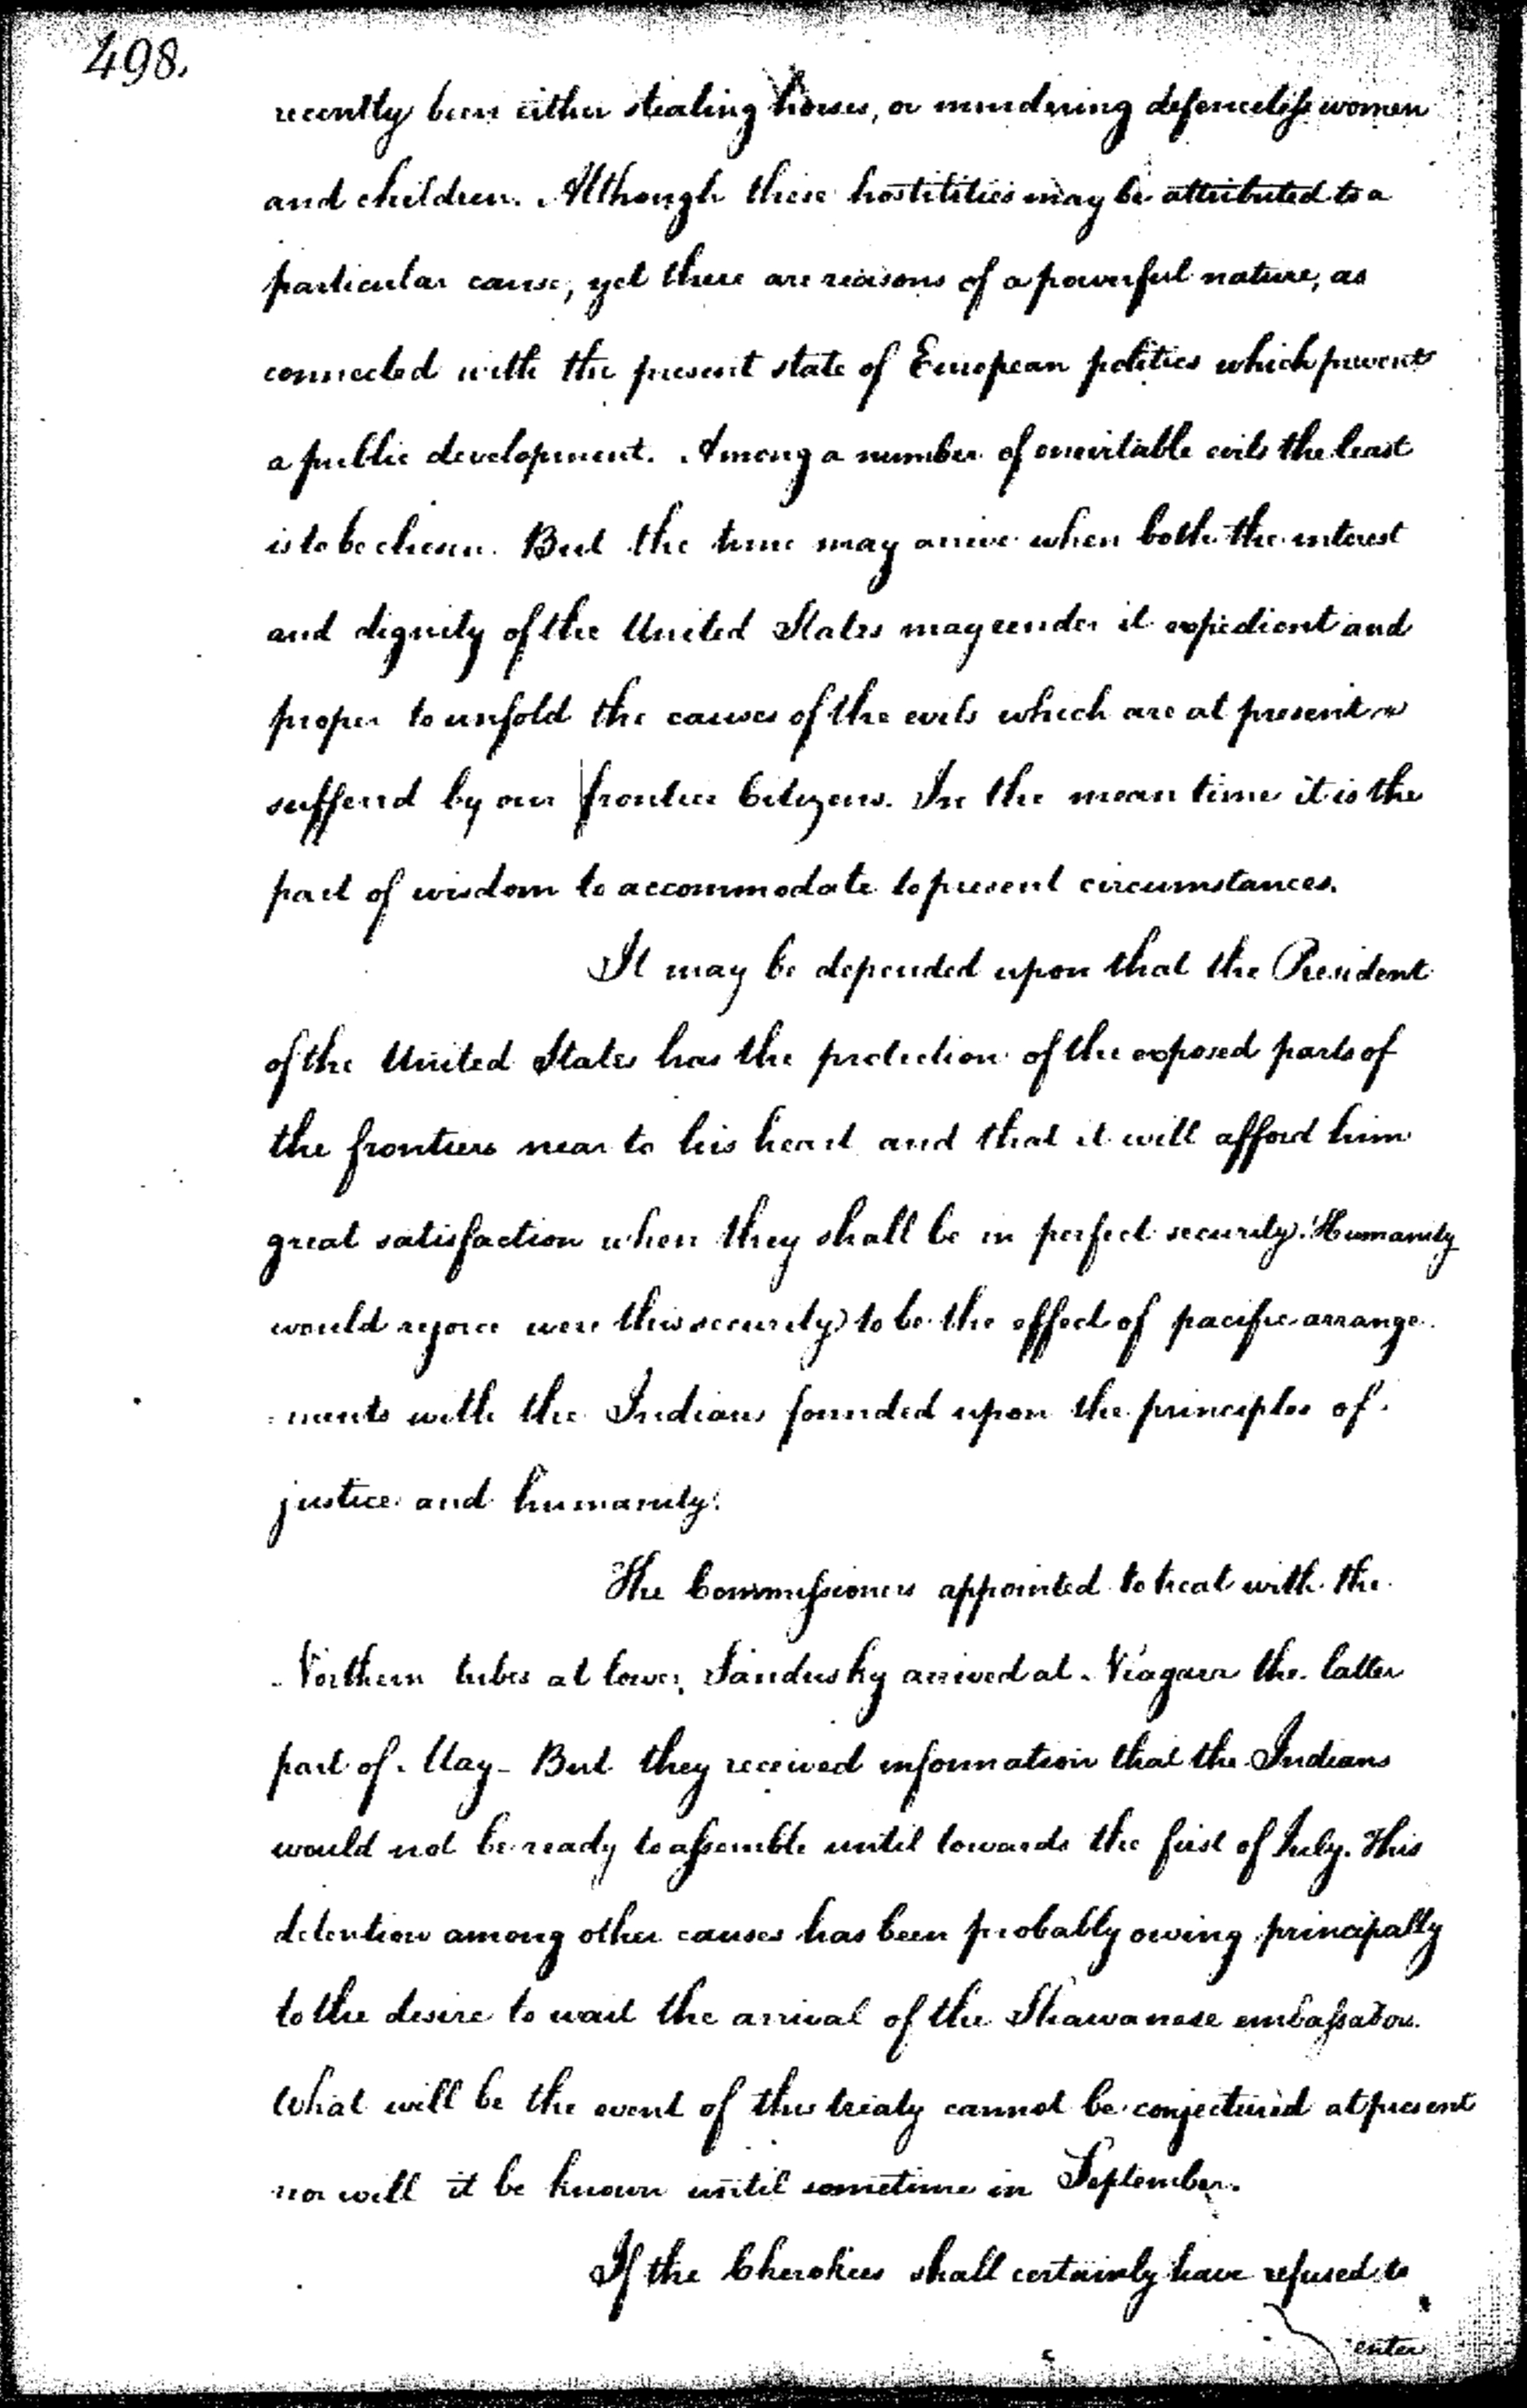 498.
recently been either stealing horses, or murdering defenceless women
and children. Although these hostilities may be attributed to a
particular cause, yet there are reasons of a powerful nature, as
connected with the present state of European politics which prevent
a public development. Among a number of inevitable evils the least
is to be chosen. But the time may arrive when both the interest
and dignity of the United States may render it expedient and
proper to unfold the causes of the evils which are at present
suffered by our frontier Citizens. In the mean time it is the
part of wisdom to accommodate to present circumstances.
It may be depended upon that the President
of the United States has the protection of the exposed parts of
the frontiers near to his heart and that it will afford him
great satisfaction when they shall be in perfect security. Humanity
would rejoice were this security to be the effect of pacific arrange
:ments with the Indians founded upon the principles of
justice and humanity.
The Commissioners appointed to treat with the
Northern tribes at lower Sandusky arrived at Niagara the latter
part of May - But they received information that the Indians
would not be ready to assemble until towards the first of July. This
detention among other causes has been probably owing principally
to the desire to wait the arrival of the Shawanese embassador.
What will be the event of this treaty cannot be conjectured at present
nor will it be known until sometime in September.
If the Cherokees shall certainly have refused to
enter